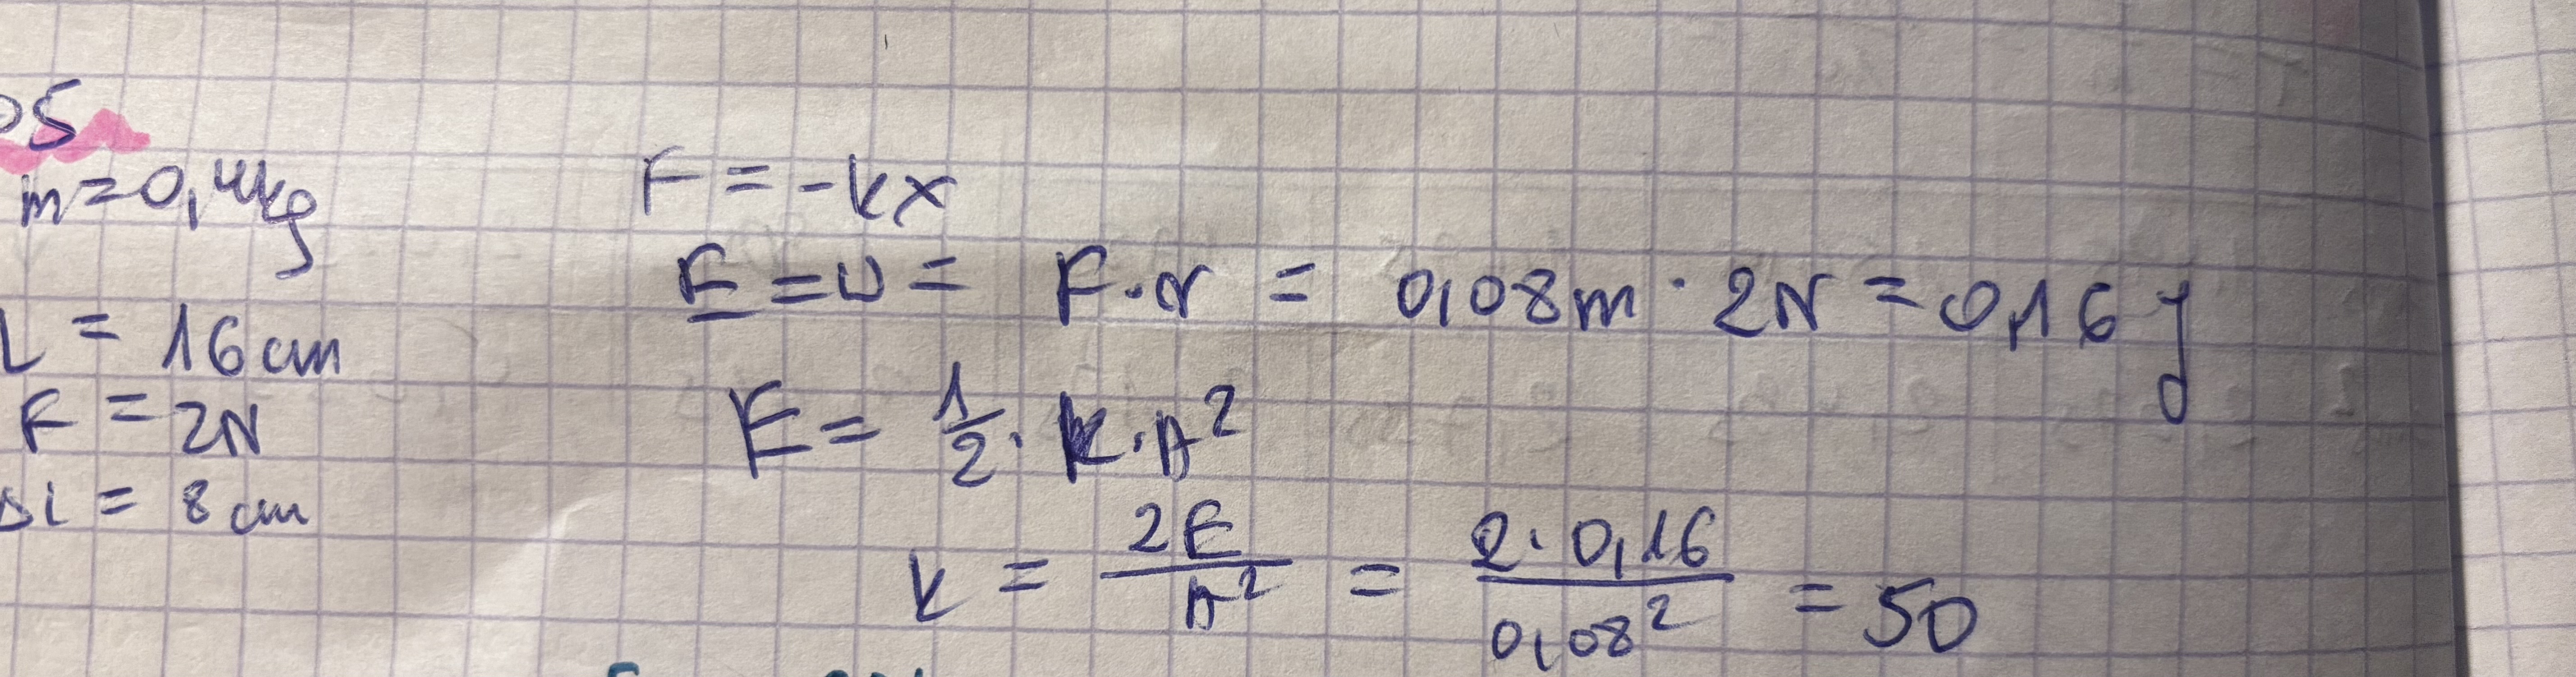 05
m=0,4kg
L = 16cm
F = 2N
Δl = 8cm
F = -kx
E = W = F·r = 0,08m · 2N = 0,16 J
E = 1/2 · k · A²
k = 2E/A² = 2·0,16/0,08² = 50